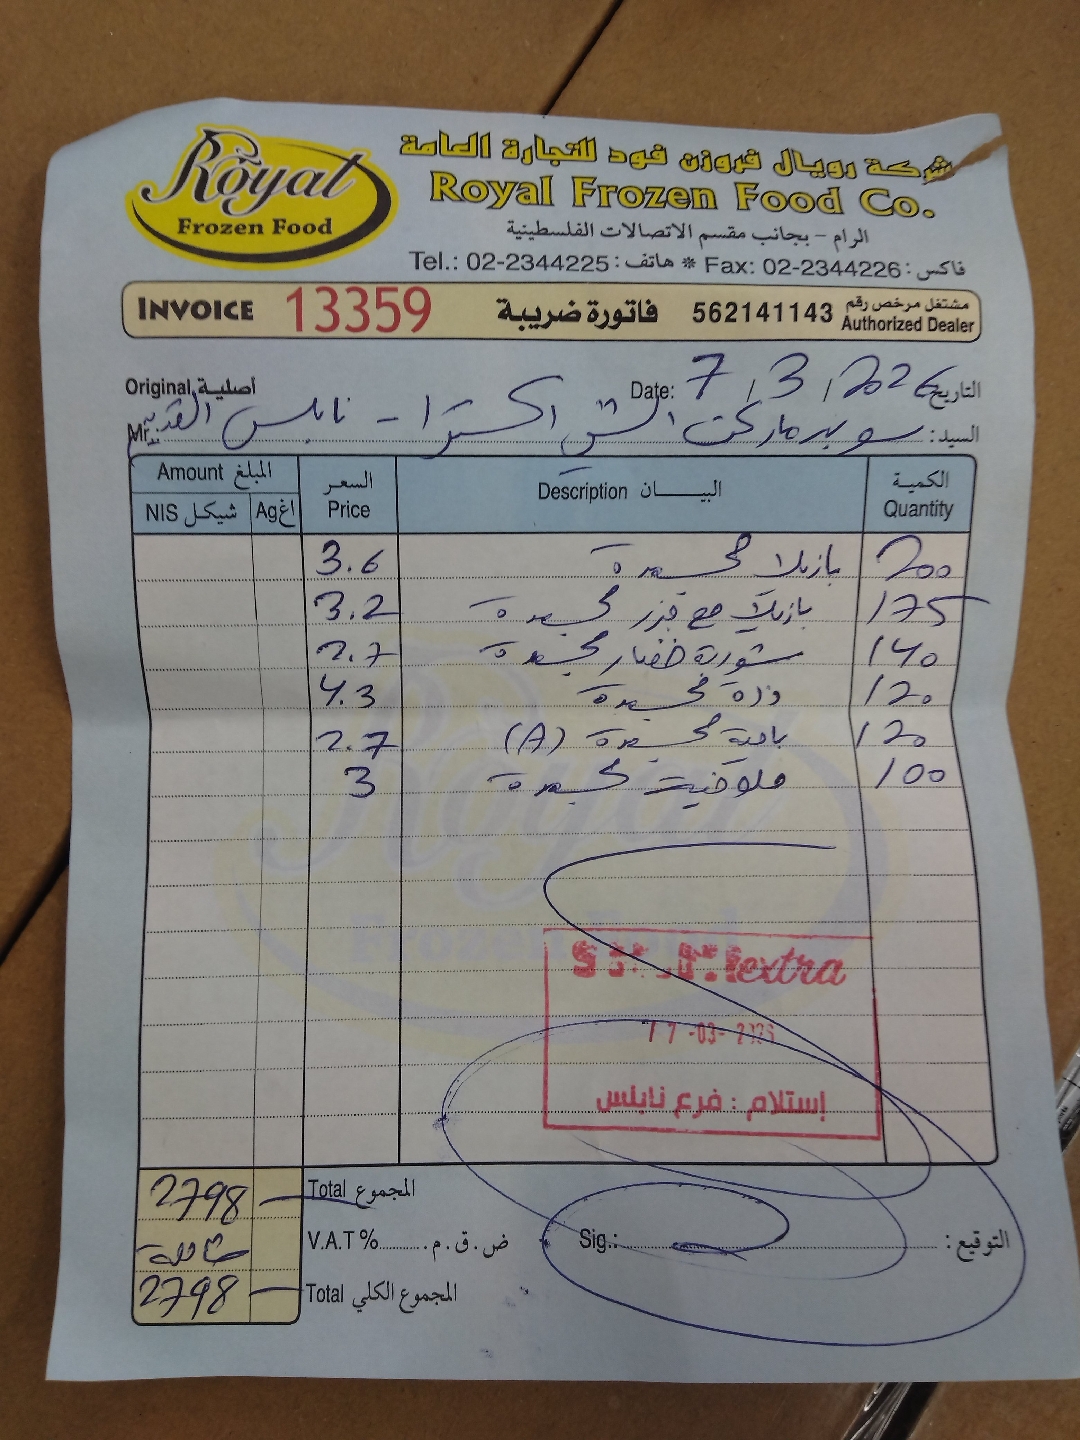 Royal
Frozen Food
شركة رويال فروزن فود للتجارة العامة
Royal Frozen Food Co.
الرام - بجانب مقسم الاتصالات الفلسطينية
Tel.: 02-2344225 : هاتف * Fax: 02-2344226 : فاكس
INVOICE 13359 فاتورة ضريبة 562141143 مشتغل مرخص رقم Authorized Dealer
Original أصلية Date: 7 / 3 / 2026 التاريخ
Mr. السيد: سوبرماركت اكسترا - نابلس
Amount المبلغ السعر Price Description البيـــان الكمية Quantity
NIS شيكل Ag اغ
3.6 بازيلا مجمدة 200
3.2 بازيلا مع جزر مجمدة 175
2.7 شوربة خضار مجمدة 140
4.3 ذرة مجمدة 120
2.7 بامية مجمدة (A) 120
3 ملوخية مجمدة 100
extra
-03-
إستلام : فرع نابلس
2798 Total المجموع
شاملة V.A.T % ض.ق.م. Sig.: التوقيع :
2798 Total المجموع الكلي